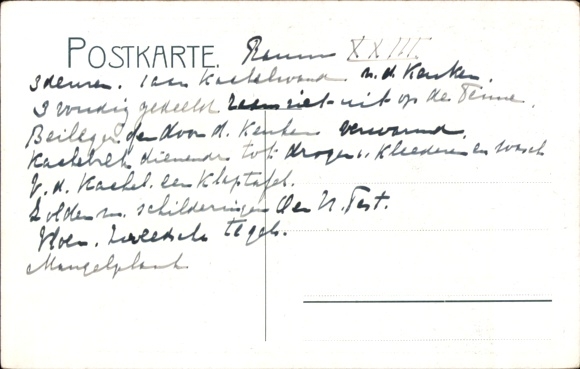 POSTKARTE. Raum XXIII.
3 deuren. 1 aan Kachelwand n. d. Keuken.
3 voudig gedeeld raam ziet uit op de Tenne.
Beilegger den door d. Keuken verwarmd.
Kachelrek dienende tot drogen v. Kleederen en wasch
V. d. Kachel een Klaptafel.
Zolder m. schilderingen Oen N. Test.
Vloer. Zweedsche tegels.
Mangelplank